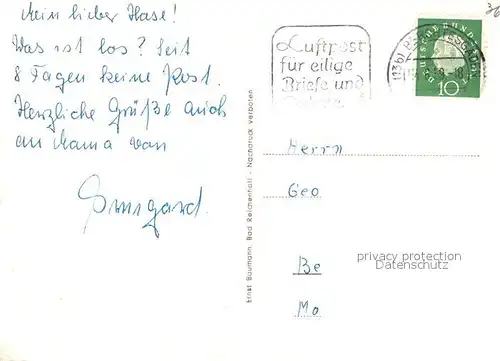 Mein lieber Hase!
Was ist los? Seit
8 Tagen keine Post.
Herzliche Grüße auch
an Mama von
Irmgard.
Ernst Baumann, Bad Reichenhall - Nachdruck verboten
Luftpost
für eilige
Briefe und
(13b)
DEUTSCHE BUNDESPOST
10
36
Herrn
Geo
Be
Mo
privacy protection
Datenschutz